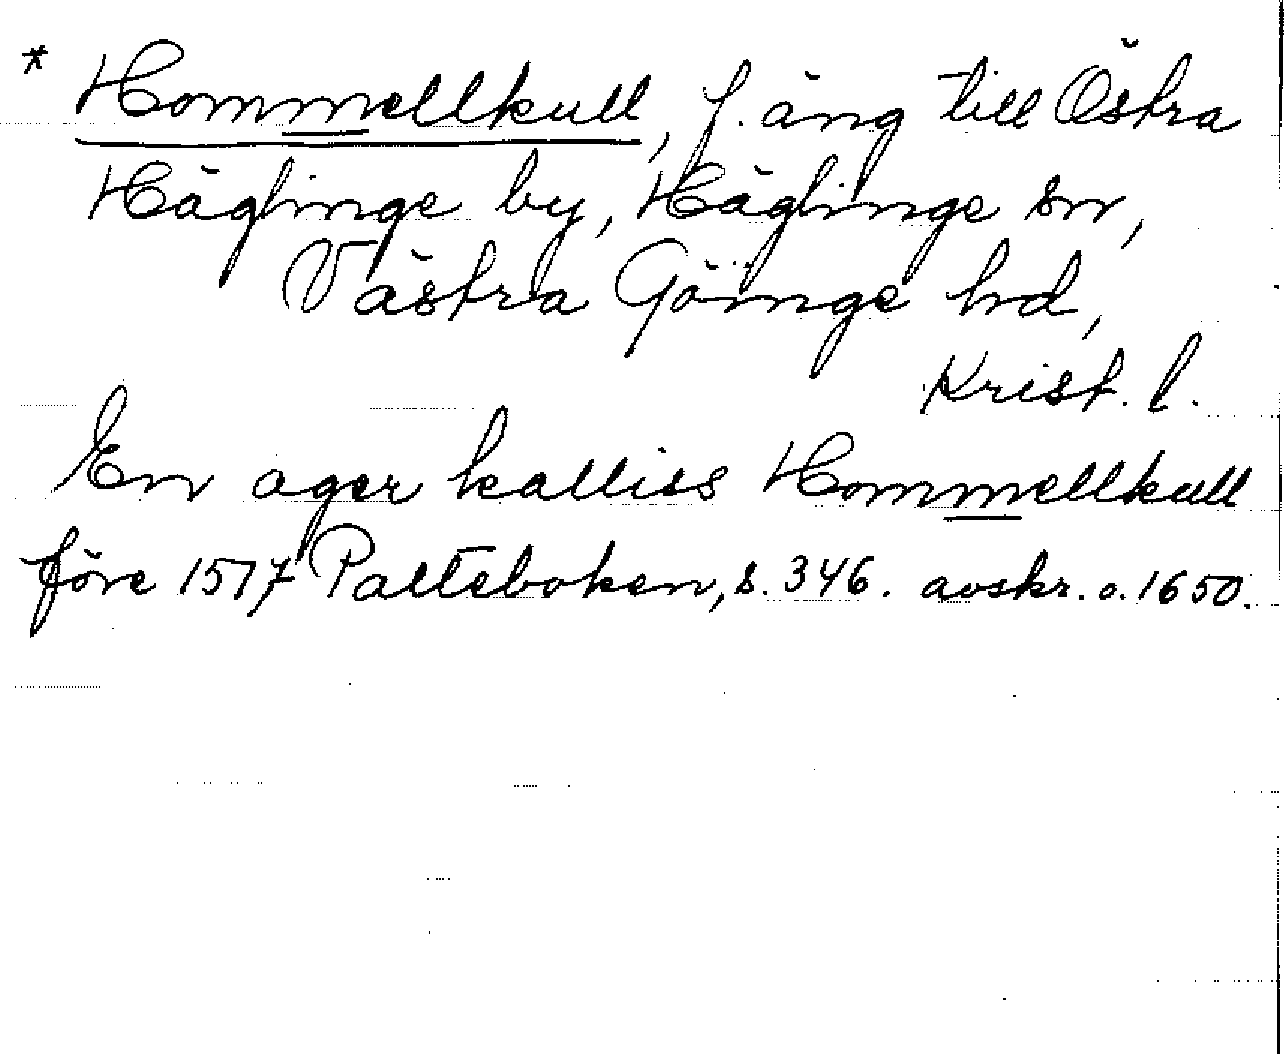 * Hommellkull, f. äng till Östra
Häglinge by, Häglinge sn,
Västra Göinge hd,
Krist. l.
En ager kalliss Hommellkull
före 1517 Palteboken, s. 346. avskr. o. 1650.